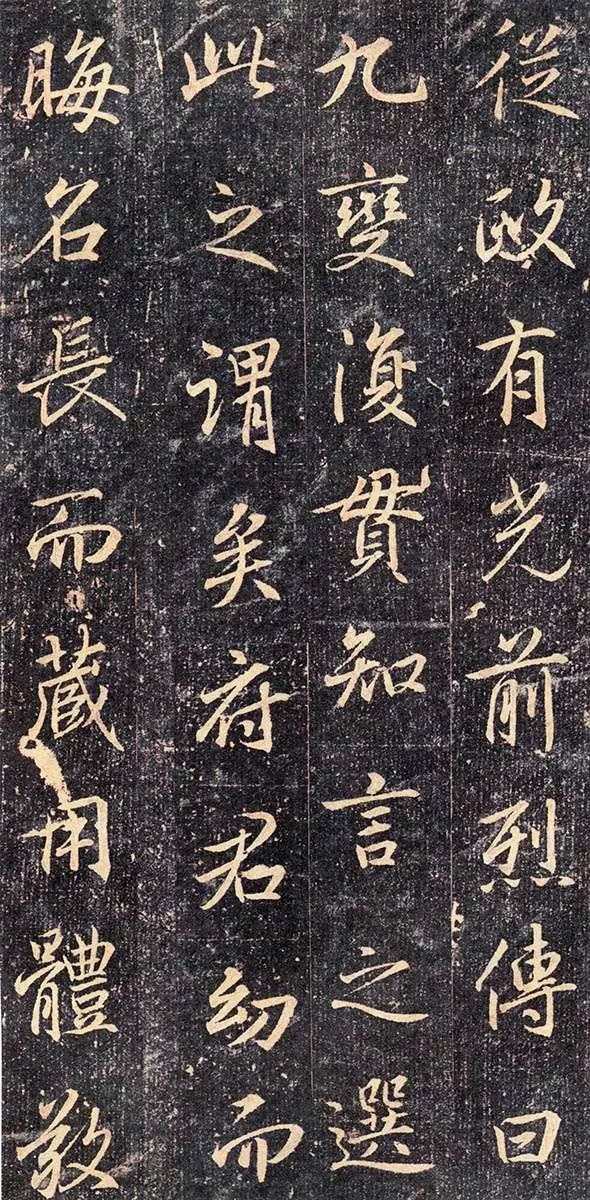 從政有光前烈傳曰
九變復貫知言之選
此之謂矣府君幼而
晦名長而藏用體敬